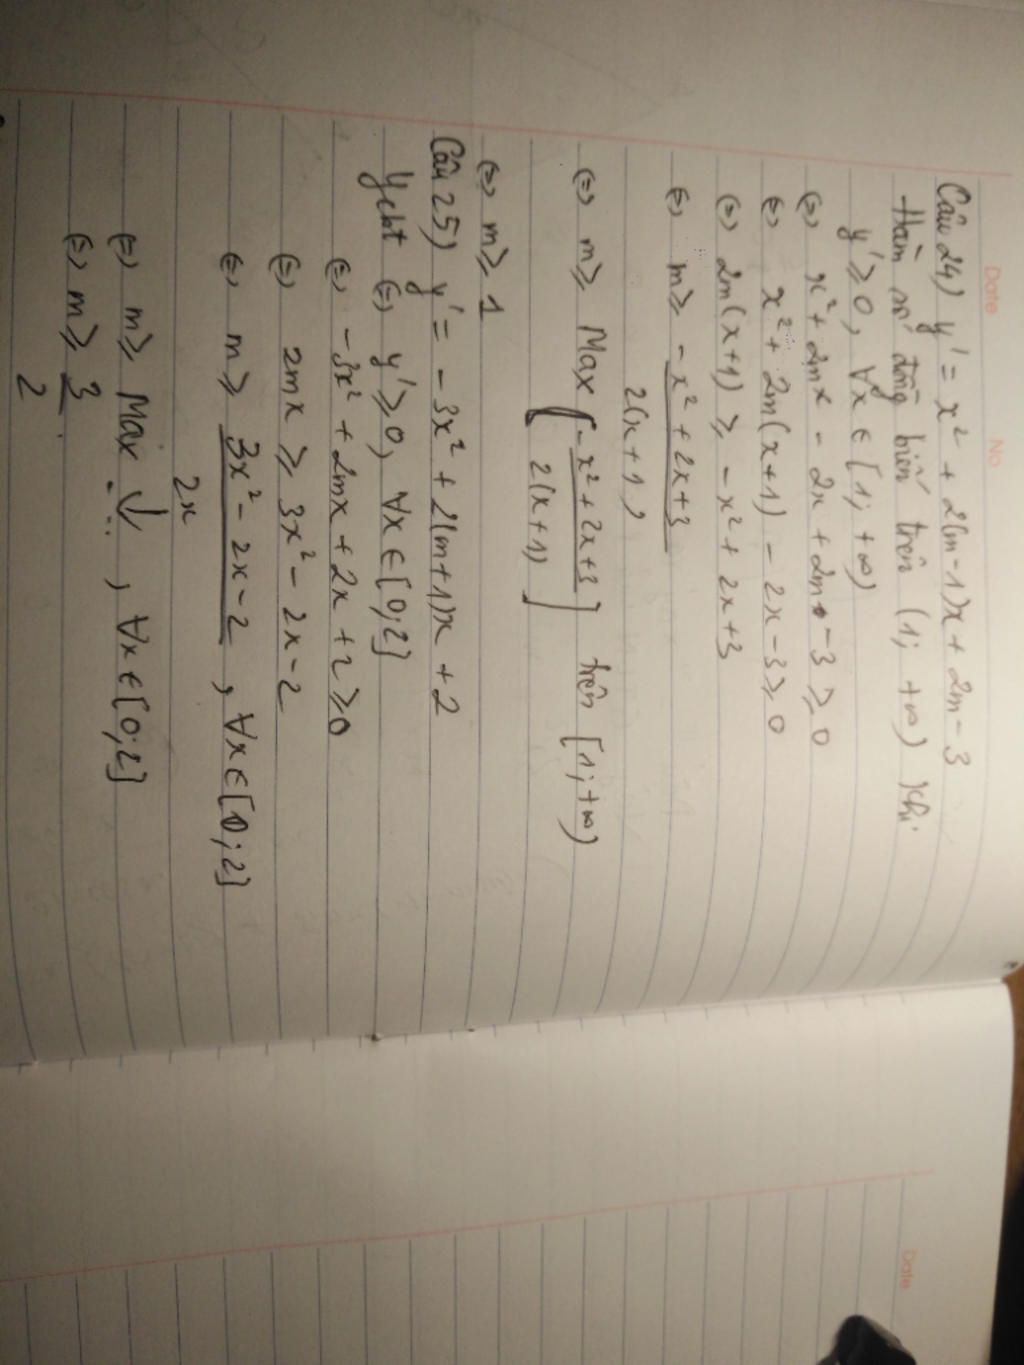 Date No
Câu 24) y' = x² + 2(m-1)x + 2m - 3
Hàm số đồng biến trên (1; +∞) khi
y' ≥ 0, ∀x ∈ [1; +∞)
⇔ x² + 2mx - 2x + 2m - 3 ≥ 0
⇔ x² + 2m(x+1) - 2x - 3 ≥ 0
⇔ 2m(x+1) ≥ -x² + 2x + 3
⇔ m ≥ -x² + 2x + 3
2(x+1)
⇔ m ≥ Max [-x² + 2x + 3] trên [1; +∞)
2(x+1)
⇔ m ≥ 1
Câu 25) y' = -3x² + 2(m+1)x + 2
Ycbt ⇔ y' ≥ 0, ∀x ∈ [0; 2]
⇔ -3x² + 2mx + 2x + 2 ≥ 0
⇔ 2mx ≥ 3x² - 2x - 2
⇔ m ≥ 3x² - 2x - 2, ∀x ∈ [0; 2]
2x
⇔ m ≥ Max ↓ ..., ∀x ∈ [0; 2]
⇔ m ≥ 3
2
Date